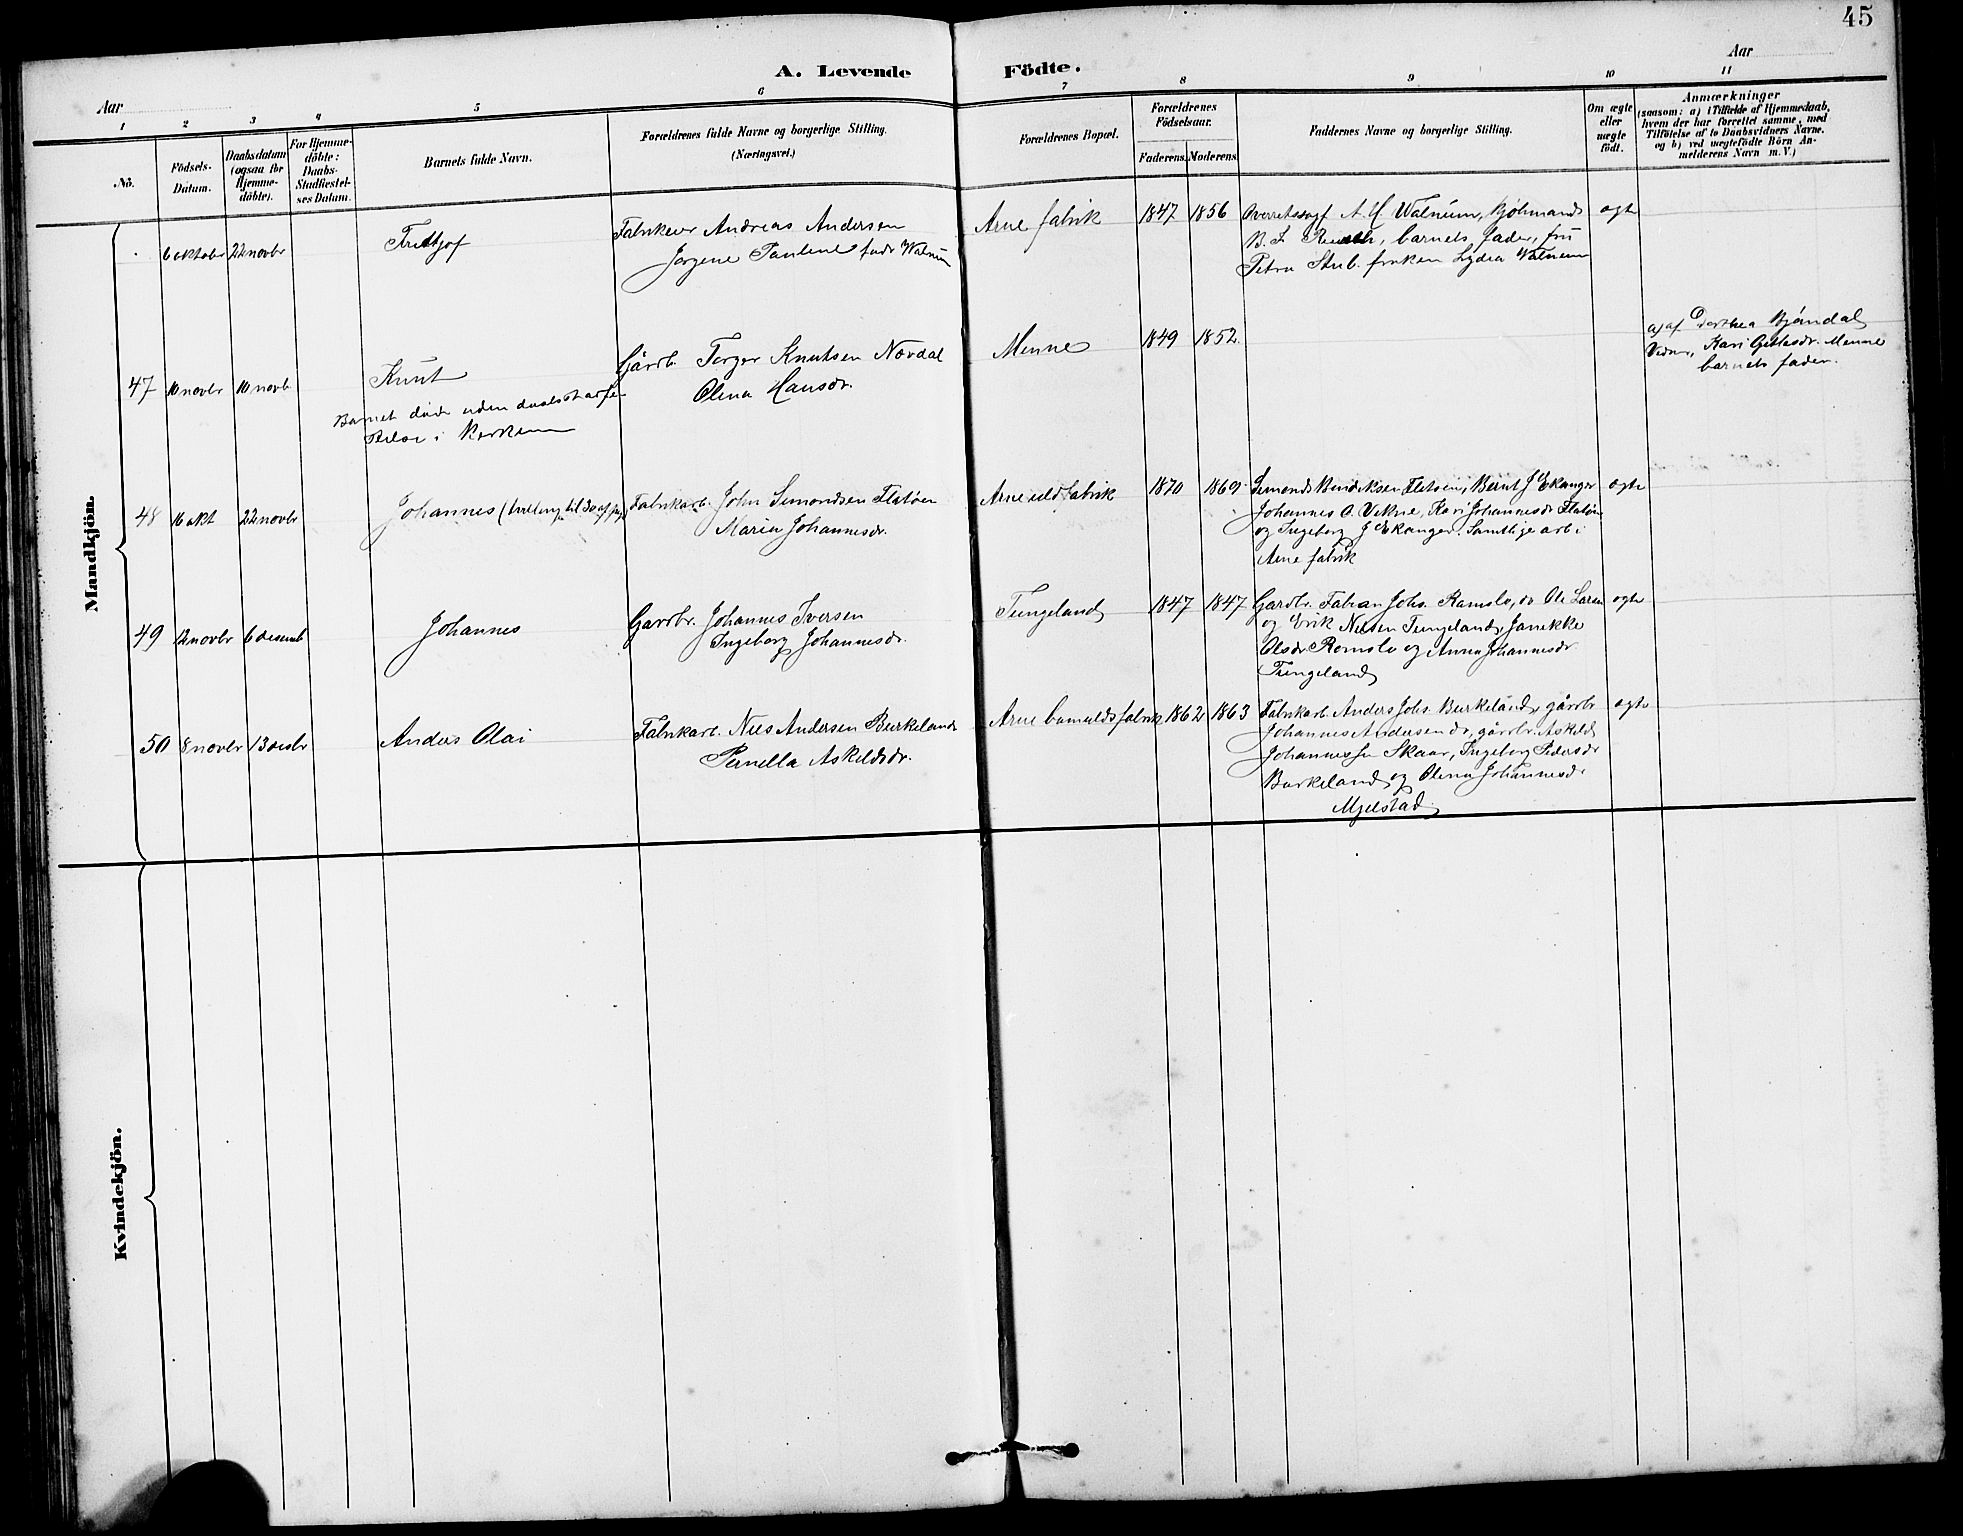 45
A. Levende Födte.
Aar
Aar
1 2 3 4 5 6 7 8 9 10 11
No.
Födsels-
Datum.
Daabsdatum
(ogsaa for
Hjemme-
döbte).
For Hjemme-
döbte:
Daabs-
Stadfæstel-
ses Datum.
Barnets fulde Navn.
Forældrenes fulde Navne og borgerlige Stilling.
(Næringsvei.)
Forældrenes Bopæl.
Forældrenes
Födselsaar.
Faderens. Moderens.
Faddernes Navne og borgerlige Stilling.
Om ægte
eller
uægte
födt.
Anmærkninger
(saasom: a) i Tilfælde af Hjemmedaab,
hvem der har forrettet samme, med
Tilföielse af to Daabsvidners Navne.
og b) ved uægtefödte Börn An-
melderens Navn m. V.)
Mandkjön.
6 oktober 22 novbr
Fridtjof
Fabrikeier Andreas Andersen
Jørgene Pauline født Walnum
Arne fabrik
1847 1856
Overretssagf A. Walnum, kjøbmand
B. barnets fader, fru
Petra Stub. frøken Lydia Walnum
ægte
47 10 novbr 10 novb
Knut
Barnet døde uden daabsstadfæ-
stelse i kirken
Gårdb. Torger Knutsen Nordal
Olena Hansdr.
Menne
1849 1852
a) af Dorthea Bjøndal
Vidner, Kari Menne
barnets fader.
48 16 okt 22 novbr
Johannes (tvilling til 30 af pig)
Fabrikarb. John Simondsen Flatøen
Maria Johannesdr.
Arne uldfabrik
1870 1869
Simond Bendiksen Flatøen, Bernt J Ekanger
Johannes O. Vikne, Kari Johannesdr Flatøen
og Ingeborg J Ekanger. Samtlige arb i
Arne fabrik
ægte
49 12 novbr 6 desemb
Johannes
Gardbr. Johannes Iversen
Ingeborg Johannesdr.
Tungeland
1847 1847
Gardbr. Fabian Johs. Romslo, do Ole Larsen
og Erik Nilsen Tungeland, Janekke
Olsdr Romslo og Anna Johannesdr
Tungeland
ægte
50 8 novbr 13 desbr
Anders Olai
Fabrikarb. Nils Andersen Burkeland
Pernella Askeldsdr.
Arne bomuldsfabrik
1862 1863
Fabrikarb. Anders Johs. Burkeland, gårdbr
Johannes Andersen do, gårdbr. Askeld
Johannessen Skaar, Ingeborg Pedersdr
Burkeland og Olena Johannesdr
Mjelstad
ægte
Kvindekjön.